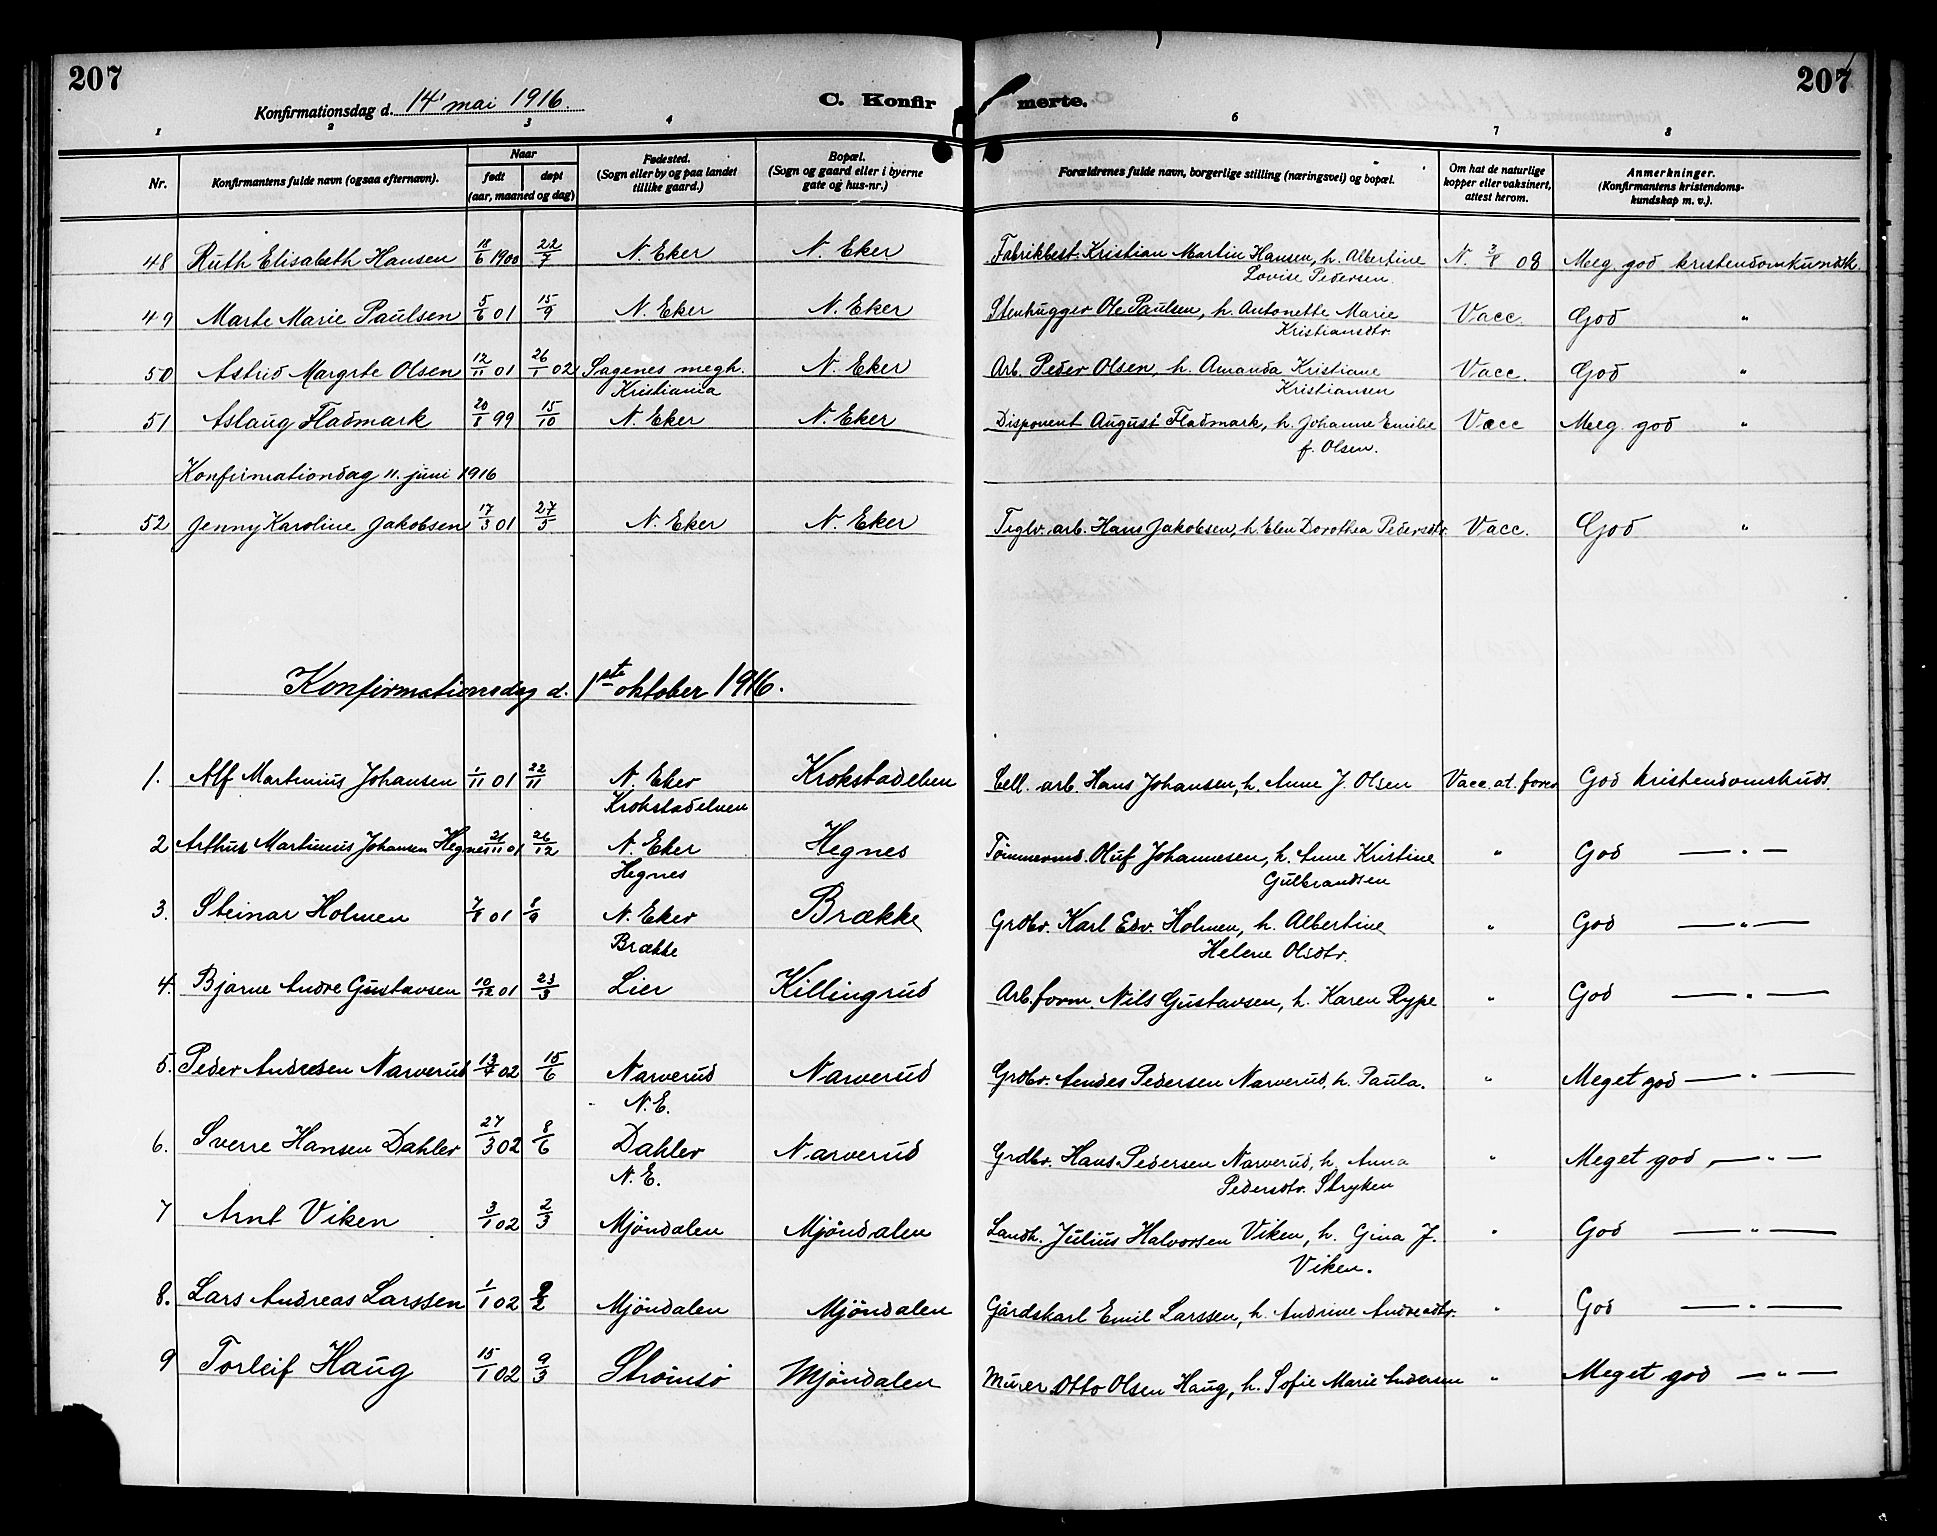 207
207
Konfirmationsdag d. 14' mai 1916.
C. Konfirmerte.
1 2 3 4 6 7 8
Nr.
Konfirmantens fulde navn (ogsaa efternavn).
Naar
født
døpt
(aar, maaned og dag)
Fødested.
(Sogn eller by og paa landet
tillike gaard.)
Bopæl.
(Sogn og gaard eller i byerne
gate og hus-nr.)
Forældrenes fulde navn, borgerlige stilling (næringsvei) og bopæl.
Om hat de naturlige
kopper eller vaksinert,
attest herom.
Anmerkninger.
(Konfirmantens kristendoms-
kundskap m. v.).
48 Ruth Elisabeth Hansen 18/6 1900 22/7 N. Eker N. Eker Fabrikbest. Kristian Martin Hansen, h. Albertine N. 3/8 08 Meg. god kristendomkundsk.
Lovise Pedersen.
49 Marte Marie Paulsen 5/6 01 15/9 N. Eker N. Eker Stenhugger Ole Paulsen, h. Antonette Marie Vacc. God "
Kristiansdtr.
50 Astrid Margrte Olsen 12/11 01 26/1 02 Sagenes megh. N. Eker Arb. Peder Olsen, h. Amanda Kristiane Vacc. God "
Kristiania Kristiansen
51 Aslaug Fladmark 20/8 99 15/10 N. Eker N. Eker Disponent August Fladmark, h. Johanne Emilie Vacc Meg. god "
f. Olsen.
Konfirmationdag 11. juni 1916
52 Jenny Karoline Jakobsen 17/3 01 27/5 N. Eker N. Eker Teglv. arb. Hans Jakobsen, h. Elen Dorothea Pedersdtr. Vacc. God "
Konfirmationsdag d. 1ste oktober 1916.
1. Alf Martinius Johansen 1/11 01 22/11 N. Eker Krokstadelven Cell. arb. Hans Johansen, h. Anne J. Olsen Vacc. at. forev God kristendomskuds.
Krokstadelven
2 Arthur Martinius Johansen Hegnes 21/11 01 26/12 N. Eker Hegnes Tømmermd. Oluf Johannesen, h. Anne Kristine " God — " —
Hegnes Gulbrandsen
3. Steinar Holmen 7/8 01 8/9 N. Eker Brække Grdbr. Karl Edv. Holmen, h. Albertine " God — " —
Brække Helene Olsdtr.
4. Bjarne Andre Gustavsen 10/12 01 23/3 Lier Killingrud Arb.form. Nils Gustavsen, h. Karen Rype " God — " —
5. Peder Andresen Narverud 13/4 02 15/6 Narverud Narverud Grdbr. Andes Pedersen Narverud, h. Paula. " Meget god — " —
N.E.
6. Sverre Hansen Dahler 27/3 02 8/6 Dahler Narverud Grdbr. Hans Pedersen Narverud, h. Anna " Meget god — " —
N.E. Pedersdtr. Stryken
7 Arnt Viken 3/1 02 2/3 Mjøndalen Mjøndalen Landh. Julius Halvorsen Viken, h. Gina J. " God — " —
Viken.
8. Lars Andreas Larssen 1/1 02 9/2 Mjøndalen Mjøndalen Gårdskarl Emil Larssen, h. Andrine Andreasdtr. " God — " —
9 Torleif Haug 15/1 02 9/3 Strømsø Mjøndalen Murer Otto Olsen Haug, h. Sofie Marie Andersen " Meget god — " —